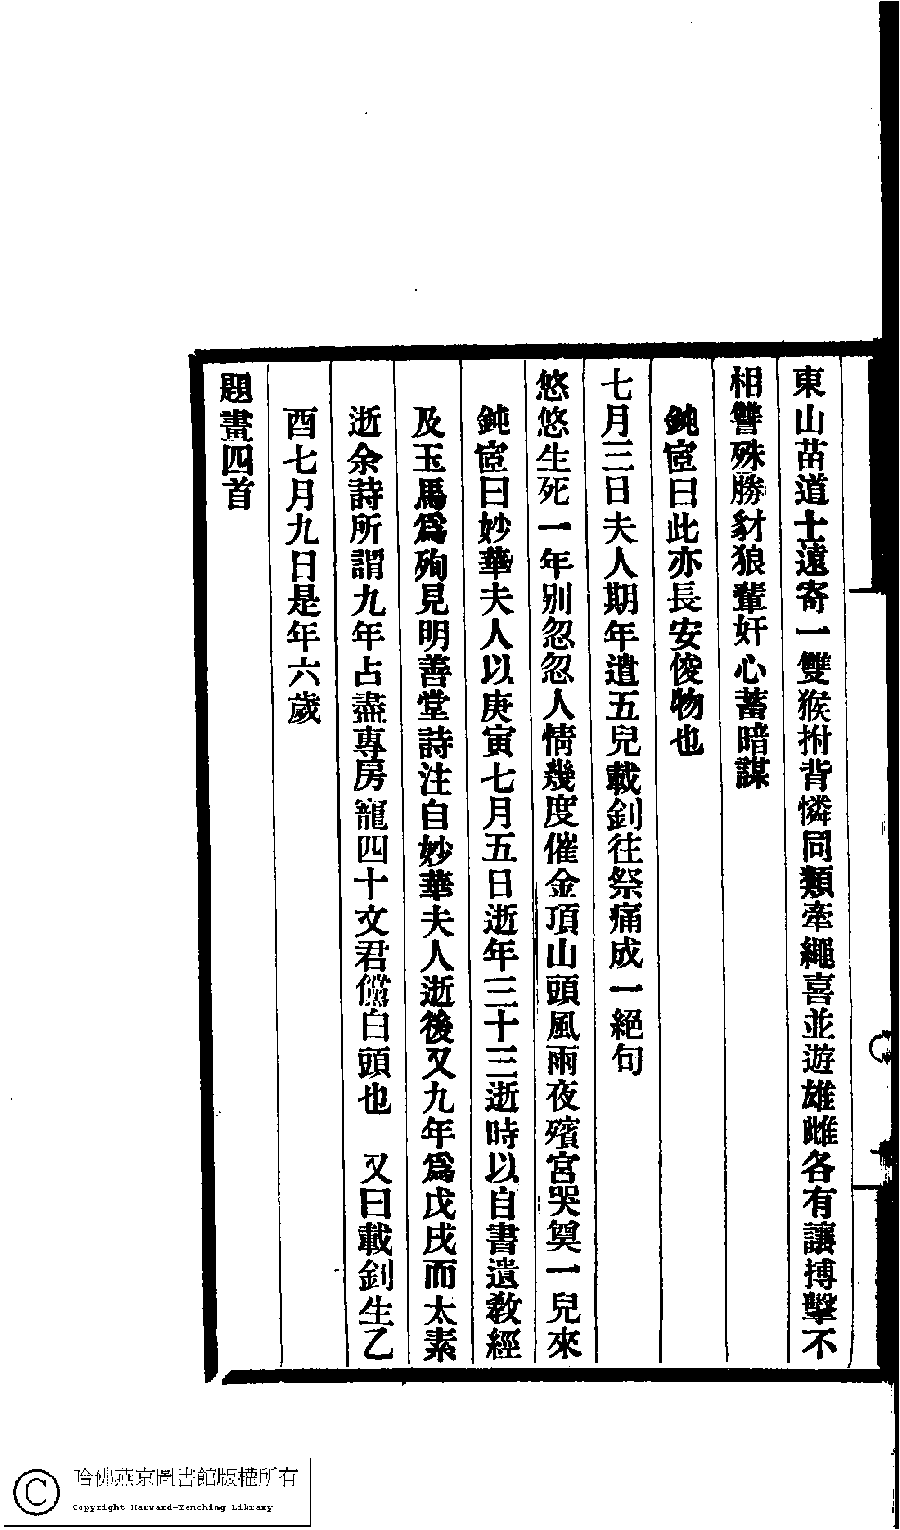 東山苗道士遠寄一雙猴拊背憐同類牽繩喜並遊雄雌各有讓搏擊不
相讐殊勝豺狼輩奸心蓄暗謀
鈍宧曰此亦長安俊物也
七月三日夫人期年遣五兒載釗往祭痛成一絕句
悠悠生死一年別忽忽人情幾度催金頂山頭風雨夜殯宮哭奠一兒來
鈍宧曰妙華夫人以庚寅七月五日逝年三十三逝時以自書遺敎經
及玉馬爲殉見明善堂詩注自妙華夫人逝後又九年爲戊戌而太素
逝余詩所謂九年占盡專房寵四十文君儻白頭也 又曰載釗生乙
酉七月九日是年六歲
題畫四首
哈佛燕京圖書館版權所有
Copyright Harvard-Yenching Library